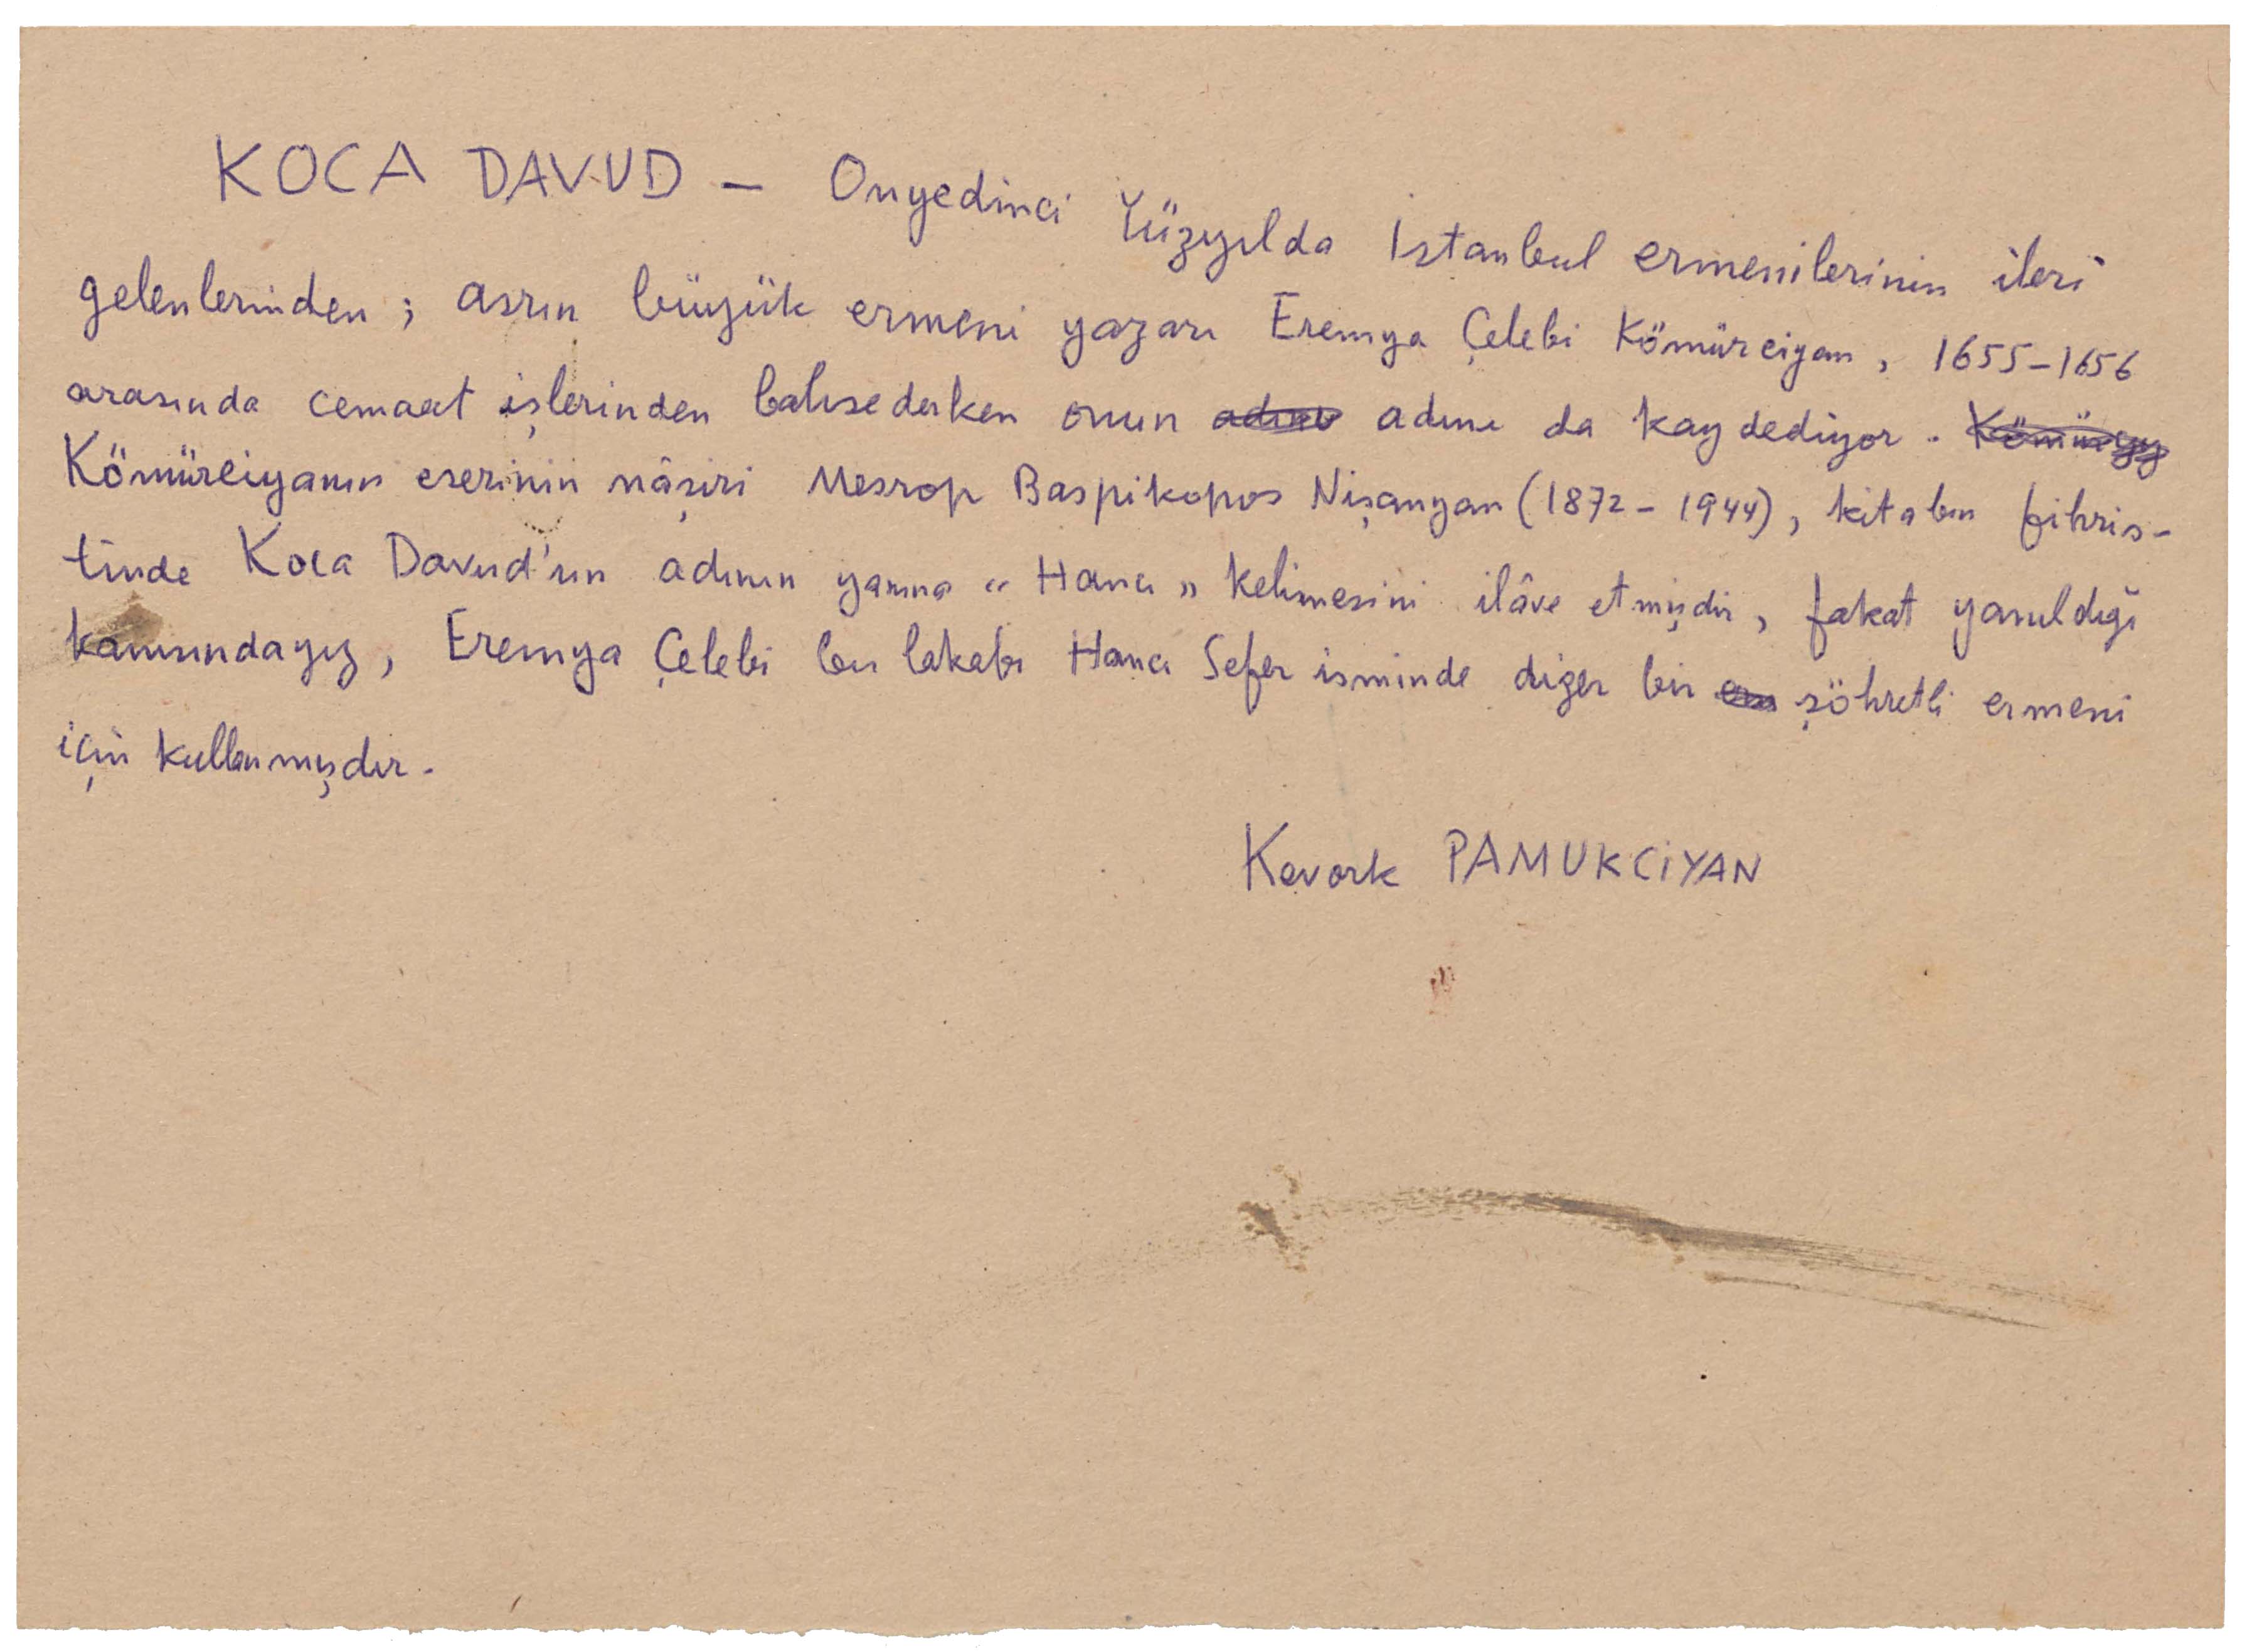 KOCA DAVUD – Onyedinci Yüzyılda İstanbul ermenilerinin ileri
gelenlerinden ; asrın büyük ermeni yazarı Eremya Çelebi Kömürciyan, 1655–1656
arasında cemaat işlerinden bahsederken onun adını da kaydediyor.
Kömürciyanın eserinin nâşiri Mesrop Baspikopos Nişanyan (1872 – 1944), kitabın fihris-
tinde Koca Davud'un adının yanına « Hancı » kelimesini ilâve etmişdir, fakat yanıldığı
kanısındayız, Eremya Çelebi bu lakabı Hancı Sefer isminde diğer bir şöhretli ermeni
için kullanmışdır.
Kevork PAMUKCİYAN